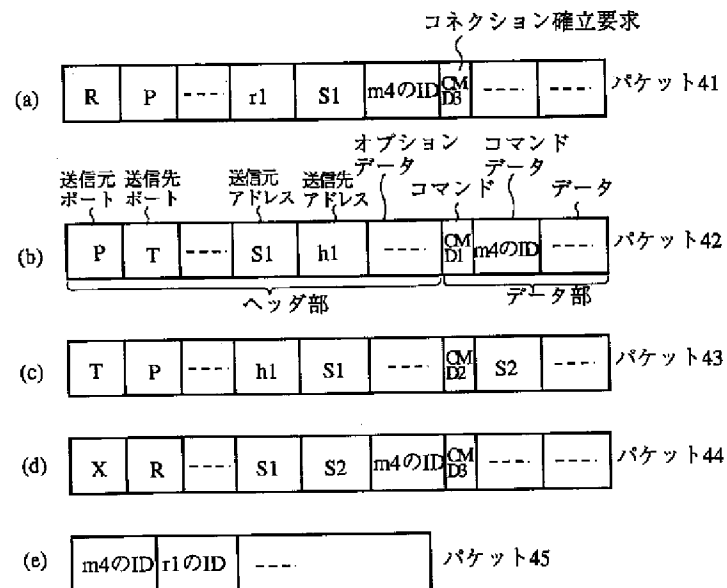 コネクション確立要求
(a) R P ---- r1 S1 m4のID CM D3 ---- ---- パケット41
オプション データ
コマンド データ
送信元 ポート
送信先 ポート
送信元 アドレス
送信先 アドレス
コマンド
データ
(b) P T ---- S1 h1 ---- CM D1 m4のID ---- パケット42
ヘッダ部 データ部
(c) T P ---- h1 S1 ---- CM D2 S2 ---- パケット43
(d) X R ---- S1 S2 m4のID CM D3 ---- ---- パケット44
(e) m4のID r1のID ---- パケット45